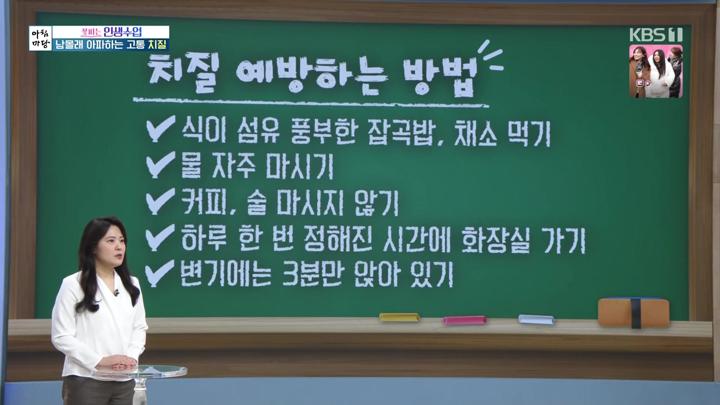 아침마당
꽃피는 인생수업
남몰래 아파하는 고통 치질
KBS1
치질 예방하는 방법
✔식이 섬유 풍부한 잡곡밥, 채소 먹기
✔물 자주 마시기
✔커피, 술 마시지 않기
✔하루 한 번 정해진 시간에 화장실 가기
✔변기에는 3분만 앉아 있기